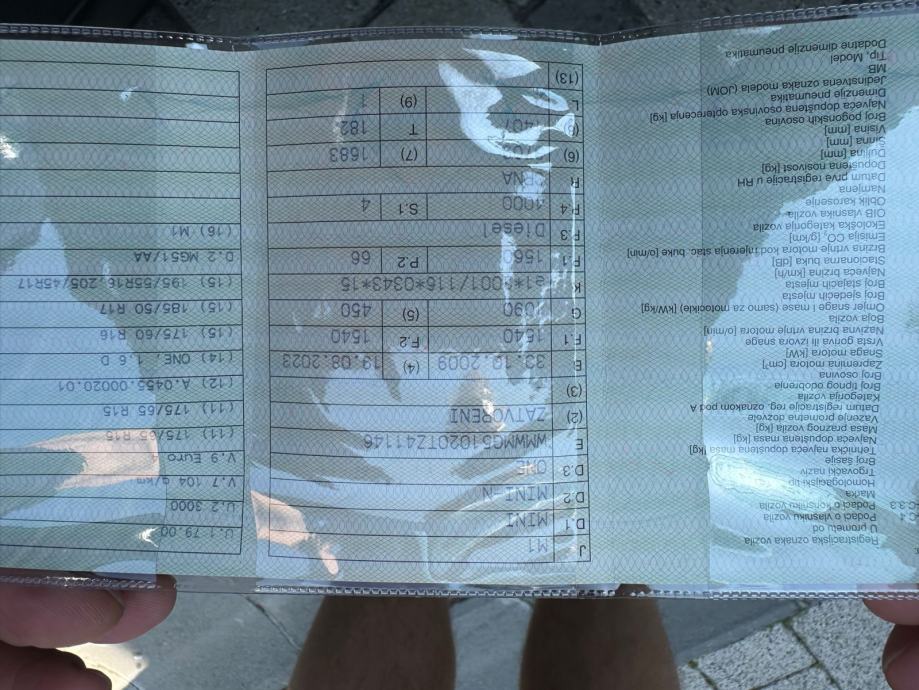 Registracijska oznaka vozila
U prometu od
Podaci o vlasniku vozila
C.4 Podaci o korisniku vozila
C.3
Marka
Homologacijski tip
Trgovački naziv
Broj šasije
Tehnička najveća dopuštena masa [kg]
Najveća dopuštena masa [kg]
Masa praznog vozila [kg]
Važenje prometne dozvole
Datum registracije reg. oznakom pod A
Kategorija vozila
Broj tipnog odobrenja
Broj osovina
Zapremina motora [cm³]
Snaga motora [kW]
Vrsta goriva ili izvora snage
Nazivna brzina vrtnje motora [o/min]
Boja vozila
Omjer snage i mase (samo za motocikle) [kW/kg]
Broj sjedećih mjesta
Broj stajaćih mjesta
Najveća brzina [km/h]
Stacionarna buka [dB]
Brzina vrtnje motora kod mjerenja stac. buke [o/min]
Emisija CO₂ [g/km]
Ekološka kategorija vozila
OIB vlasnika vozila
Oblik karoserije
Namjena
Datum prve registracije u RH
Dopuštena nosivost [kg]
Duljina [mm]
Širina [mm]
Visina [mm]
Broj pogonskih osovina
Najveća dopuštena osovinska opterećenja [kg]
Dimenzije pneumatika
Jedinstvena oznaka modela (JOM)
MB
Tip, Model
Dodatne dimenzije pneumatika
J M1
D.1 MINI
D.2 MINI-N
D.3 ONE
E WMWMG51020T241146
(2) ZATVORENI
(3)
(4) 19.08.2023
F.1 1540 F.2 1540
G 1090 (5) 450
K e1*2001/116*0343*15
1560 P.2 66
Diesel
4000 S.1 4
R CRNA
(6) (7) 1683
(8) 1407 T 182
L (9) 1
(13)
U.1 79,00
U.2 3000
V.7 104 g/km
V.9 Euro
(11) 175/65 R15
(11) 175/65 R15
(12) A.0455.00020.01
(14) ONE, 1.6 D
(15) 175/60 R16
(15) 185/50 R17
(15) 195/55R16,205/45R17
D.2 MG51/AA
(16) M1